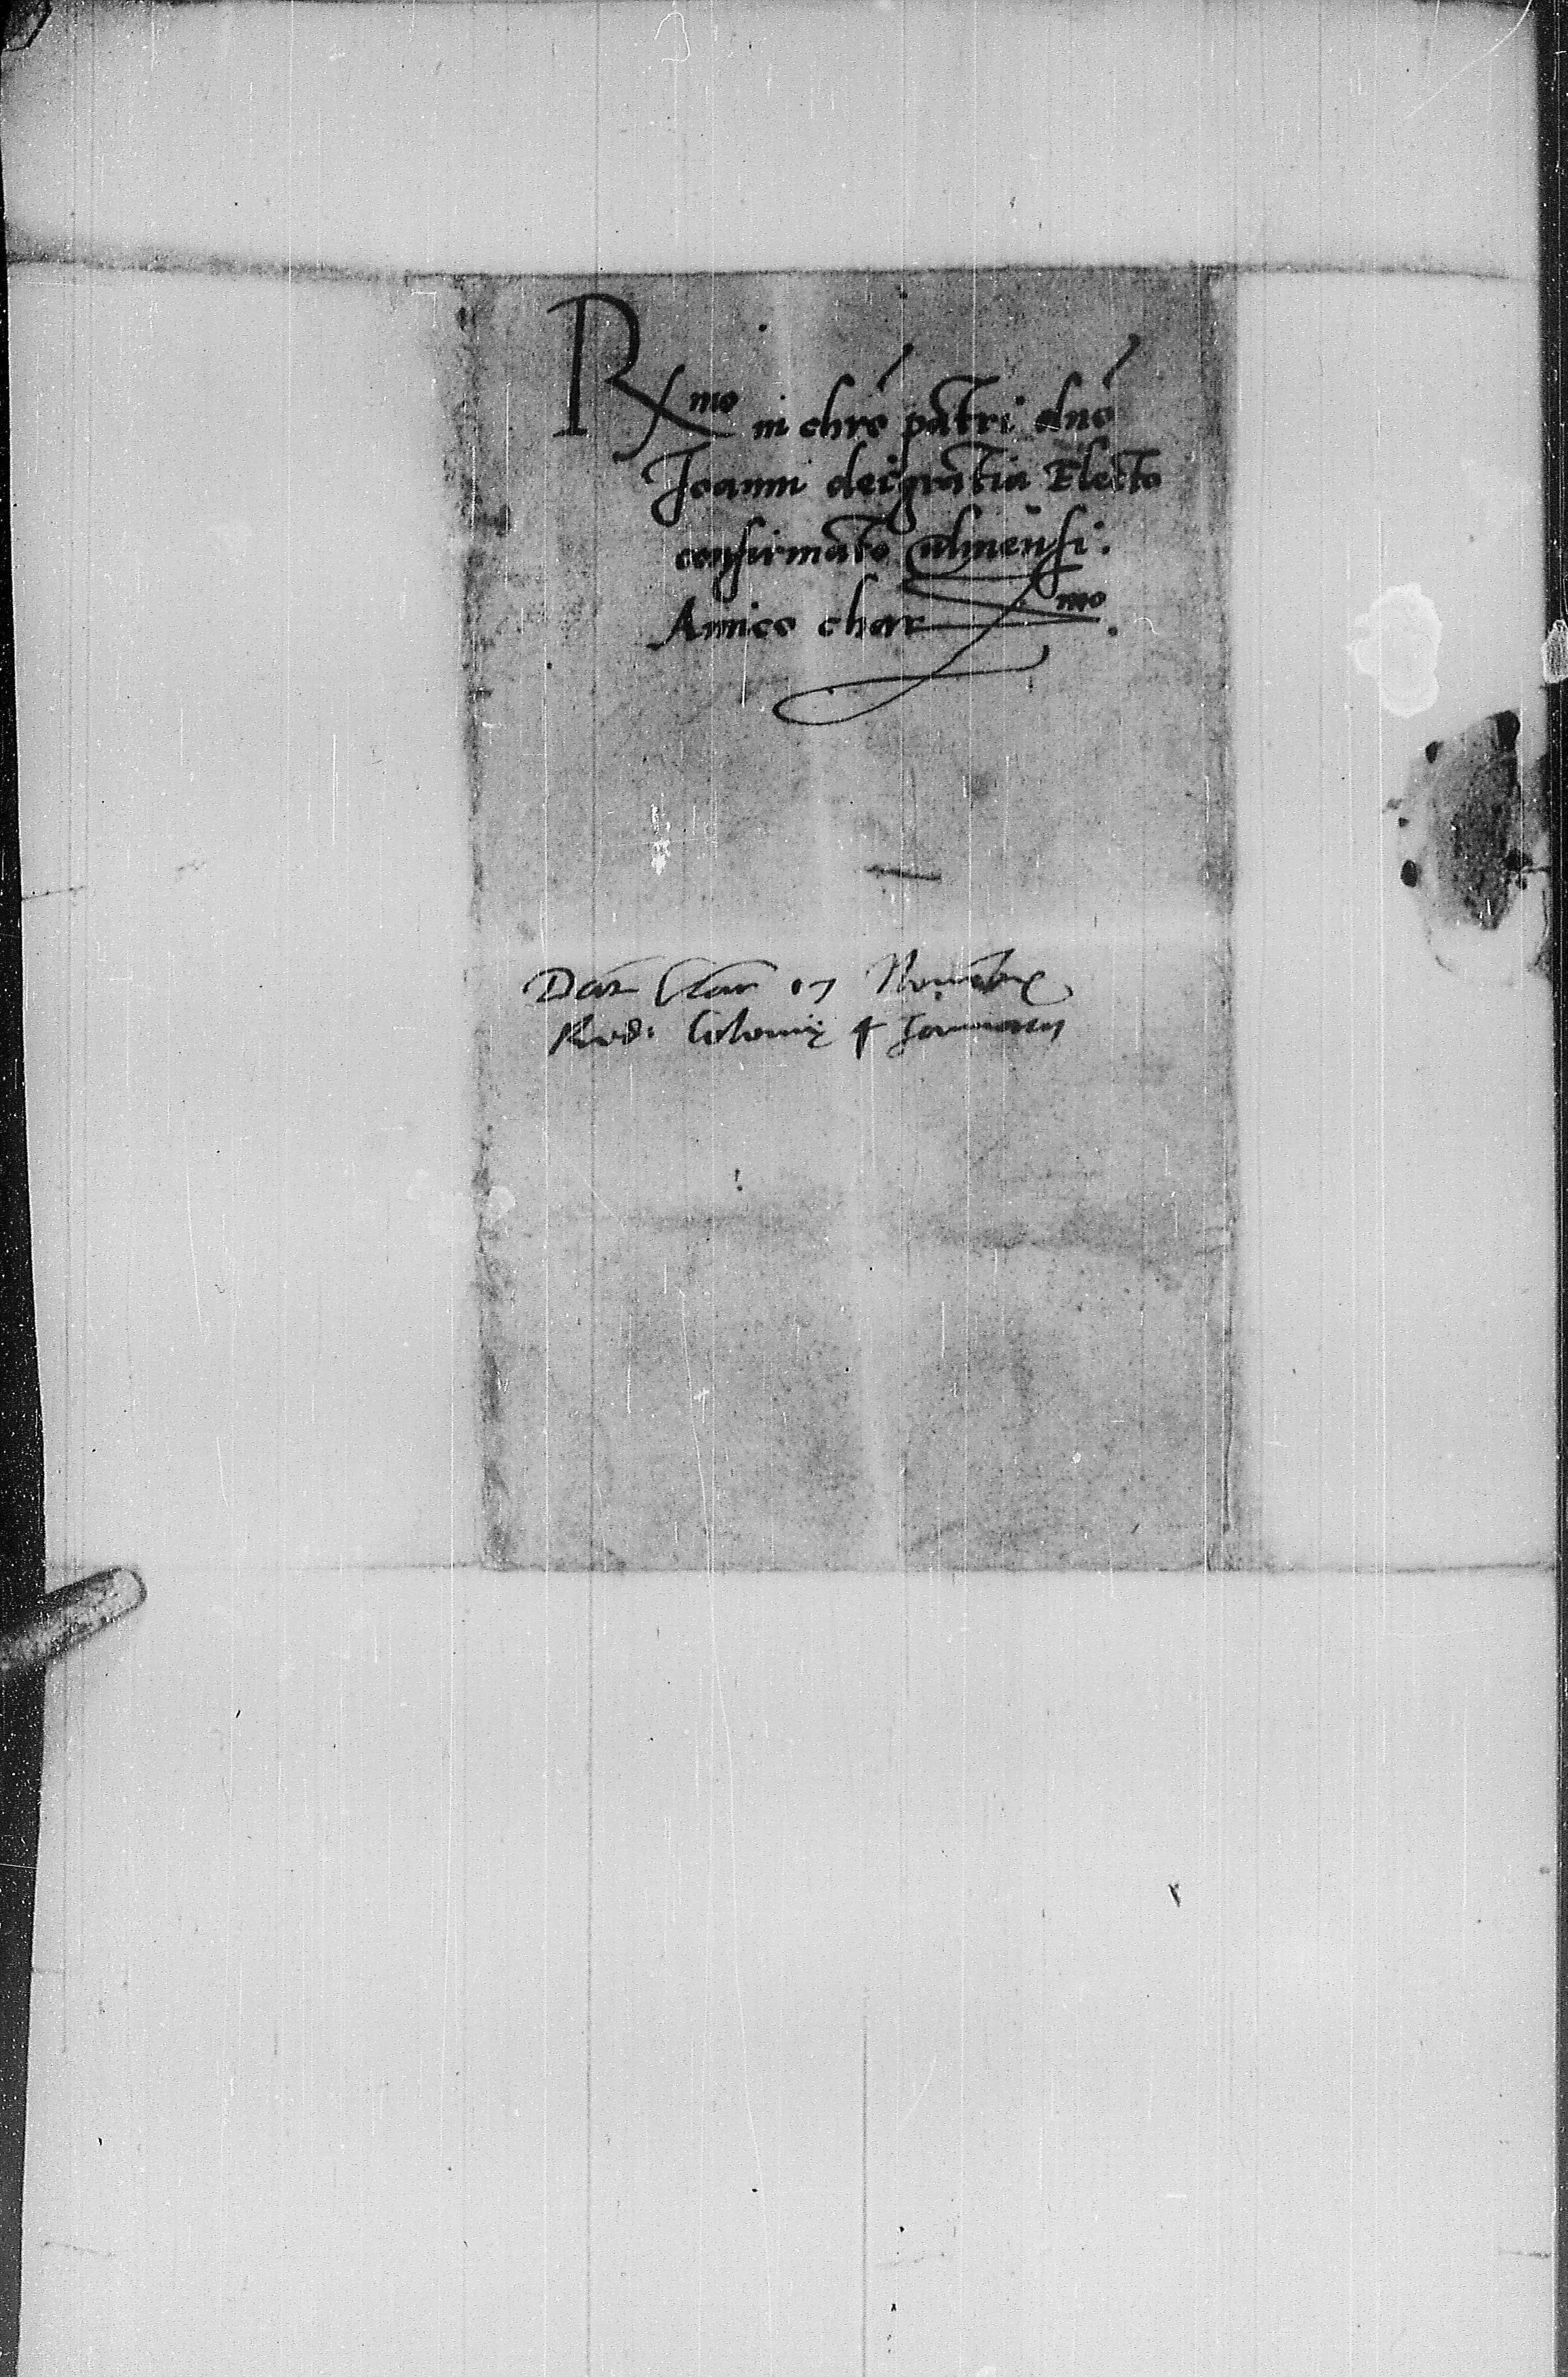 R.mo in chro patri dno
Joanni dei gratia Electo
confirmato Culmensi.
Amico char.mo.
Dat 17 Novembr
Red: Colonię 4 Januarii